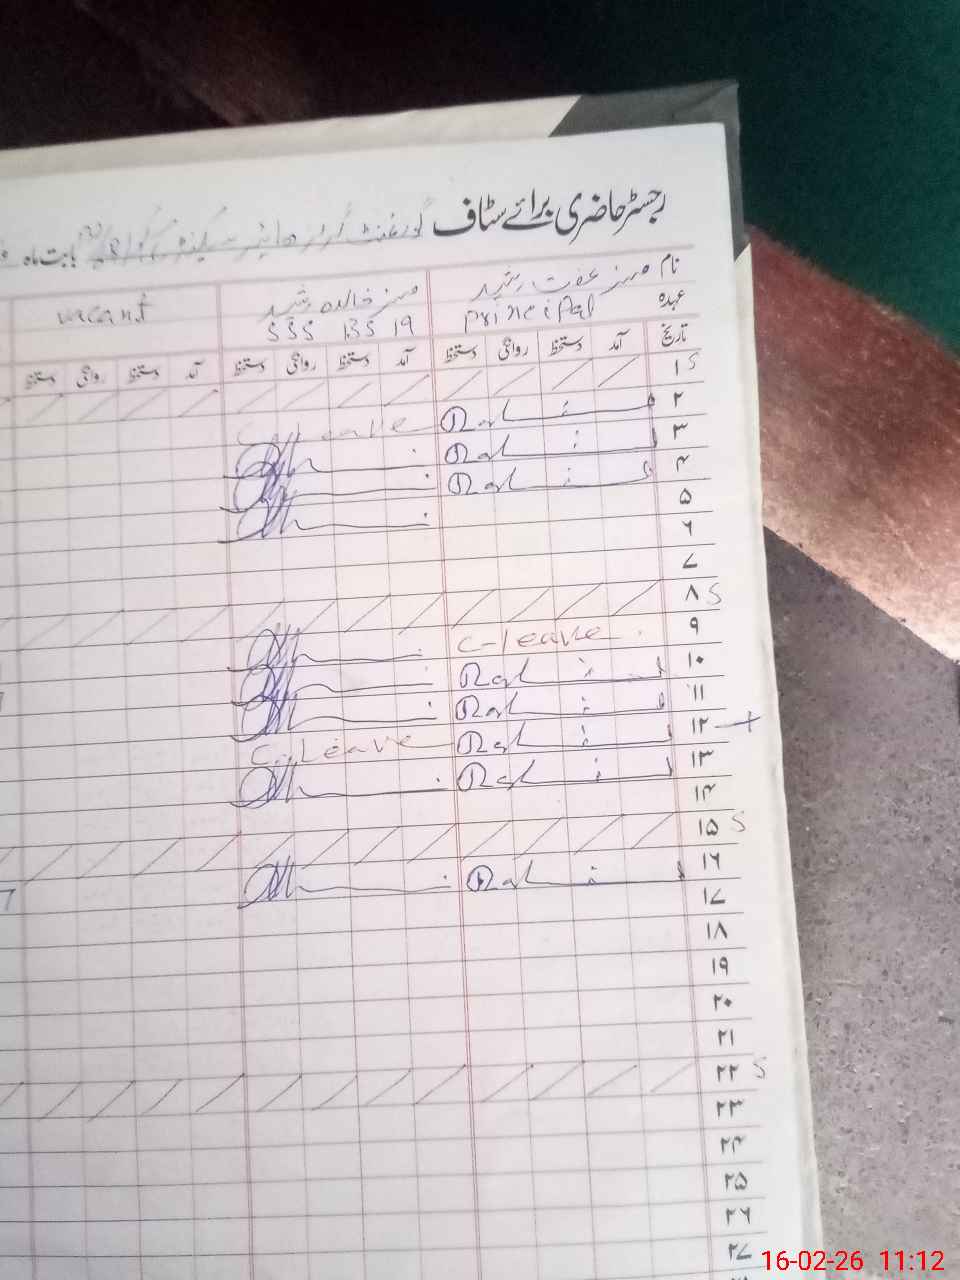 رجسٹر حاضری برائے سٹاف گورنمنٹ گرلز ہائیر سیکنڈری بابت ماہ
نام مسز عفت رشید مسز خالدہ رشید vacant
عہدہ principal SSS BS 19
تاریخ آمد دستخط روانگی دستخط آمد دستخط روانگی دستخط آمد دستخط روانگی دستخط
۱ S
۲ C.Leave
۳
۴
۵
۶
۷
۸ S
۹ C-leave
۱۰
۱۱
۱۲
۱۳ C.Leave
۱۴
۱۵ S
۱۶
۱۷
۱۸
۱۹
۲۰
۲۱
۲۲ S
۲۳
۲۴
۲۵
۲۶
۲۷
16-02-26 11:12